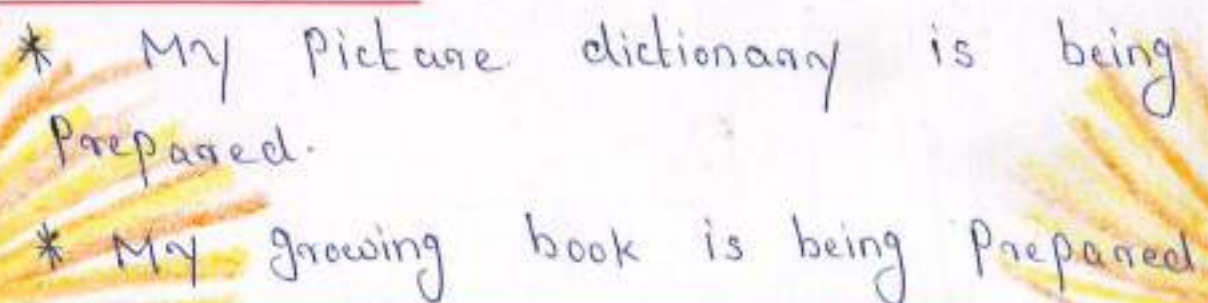 * My Picture dictionary is being
Prepared.
* My growing book is being Prepared